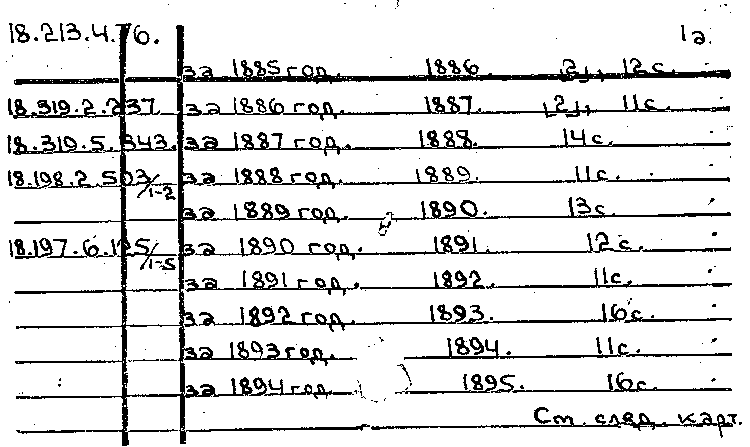 18.213.4.76. 1а
за 1885 год. 1886. |2|, 12с.
18.319.2.237 за 1886 год. 1887. |2|, 11с.
18.319.5.343. за 1887 год. 1888. 14с.
18.198.2.503/1-2 за 1888 год. 1889. 11с.
за 1889 год. 1890. 13с.
18.197.6.125/1-5 за 1890 год. 1891. 12с.
за 1891 год. 1892. 11с.
за 1892 год. 1893. 16с.
за 1893 год. 1894. 11с.
за 1894 год. 1895. 16с.
См. след. карт.